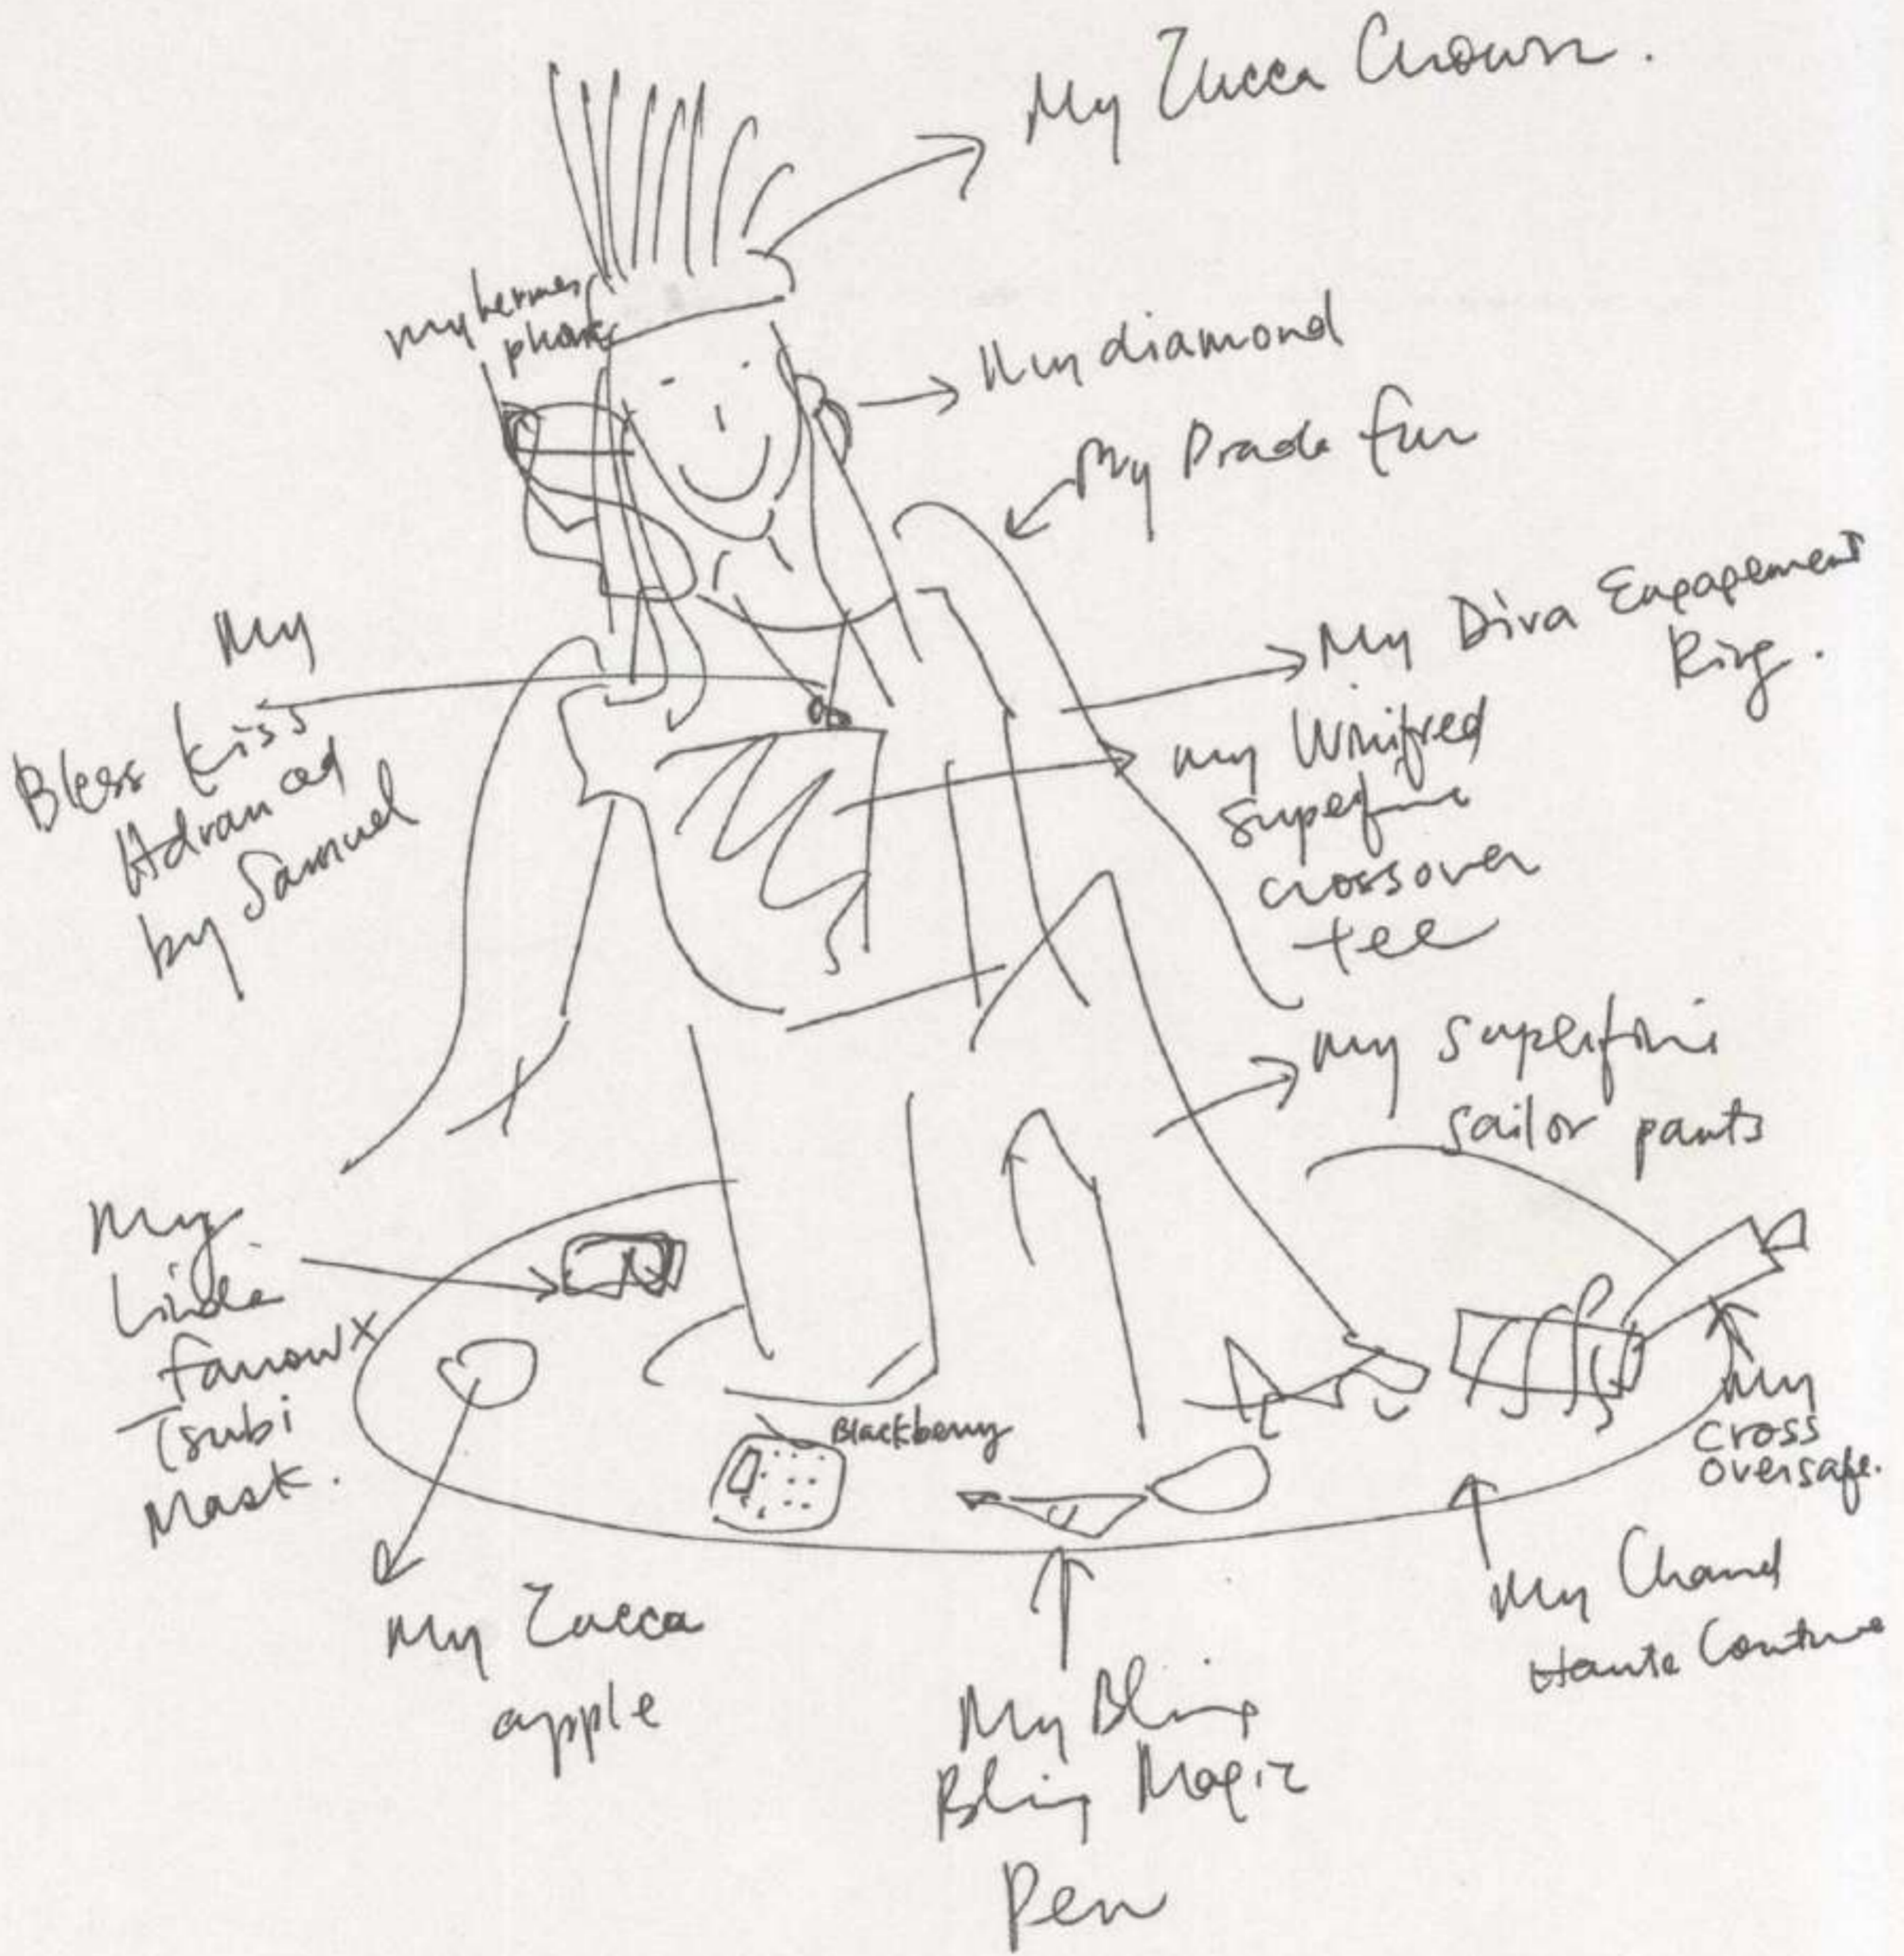 My Zucca Crown.
my hermes
phone
My diamond
My Prada fur
My Diva Engagement
Ring.
My
Bless kiss
Advanced
by Samuel
my Winifred
superfine
crossover
tee
my superfine
sailor pants
My
Linda
Farrow X
Tsubi
Mask.
Blackberry
My
cross
oversafe.
My Chanel
Haute Couture
My Zucca
apple
My Bling
Bling Magic
Pen